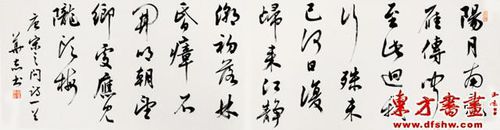 陽月南飛
雁傳聞
至此迴我
行殊未
已何日復
歸來江静
潮初落林
昏瘴不
開明朝望
鄉處應見
隴頭梅
唐宋之問詩一首
東方書畫
www.dfshw.com